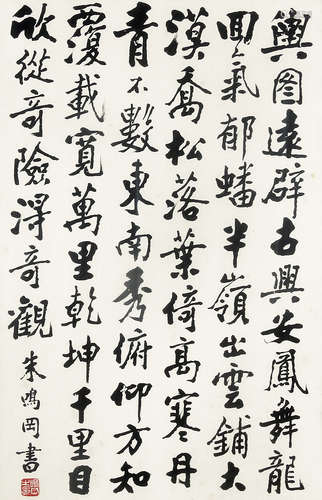 輿图遠辟古興安鳳舞龍
回氣郁蟠半嶺出雲鋪大
漠喬松落葉倚高寒丹
青不數東南秀俯仰方知
覆載寬萬里乾坤千里目
欣從竒險淂竒觀
朱鳴岡書